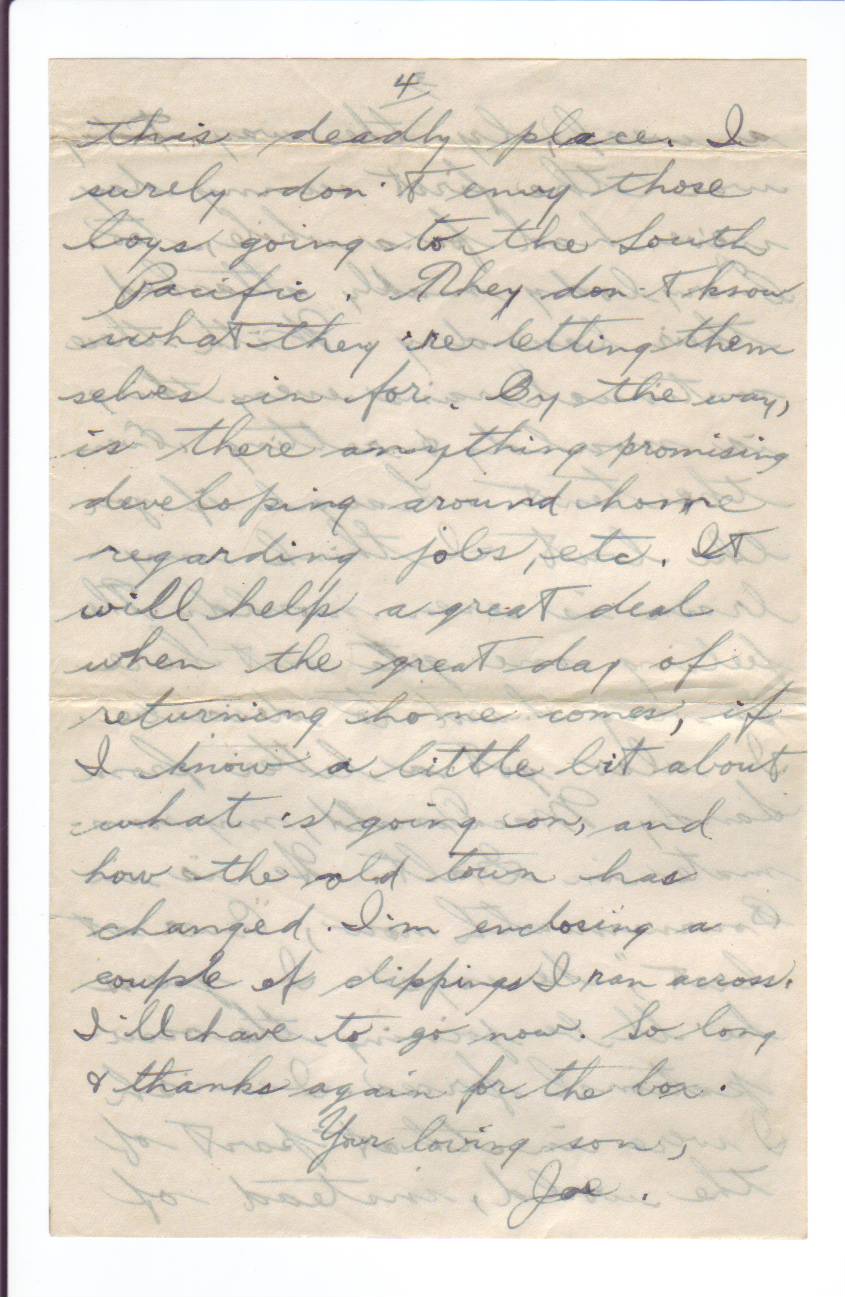 4
this deadly place. I
surely don't envy those
boys going to the South
Pacific. They don't know
what they're letting them
selves in for. By the way,
is there anything promising
developing around home
regarding jobs, etc. It
will help a great deal
when the great day of
returning home comes, if
I know a little bit about
what is going on, and
how the old town has
changed. I'm enclosing a
couple of clippings I ran across.
I'll have to go now. So long
& thanks again for the box.
Your loving son,
Joe.